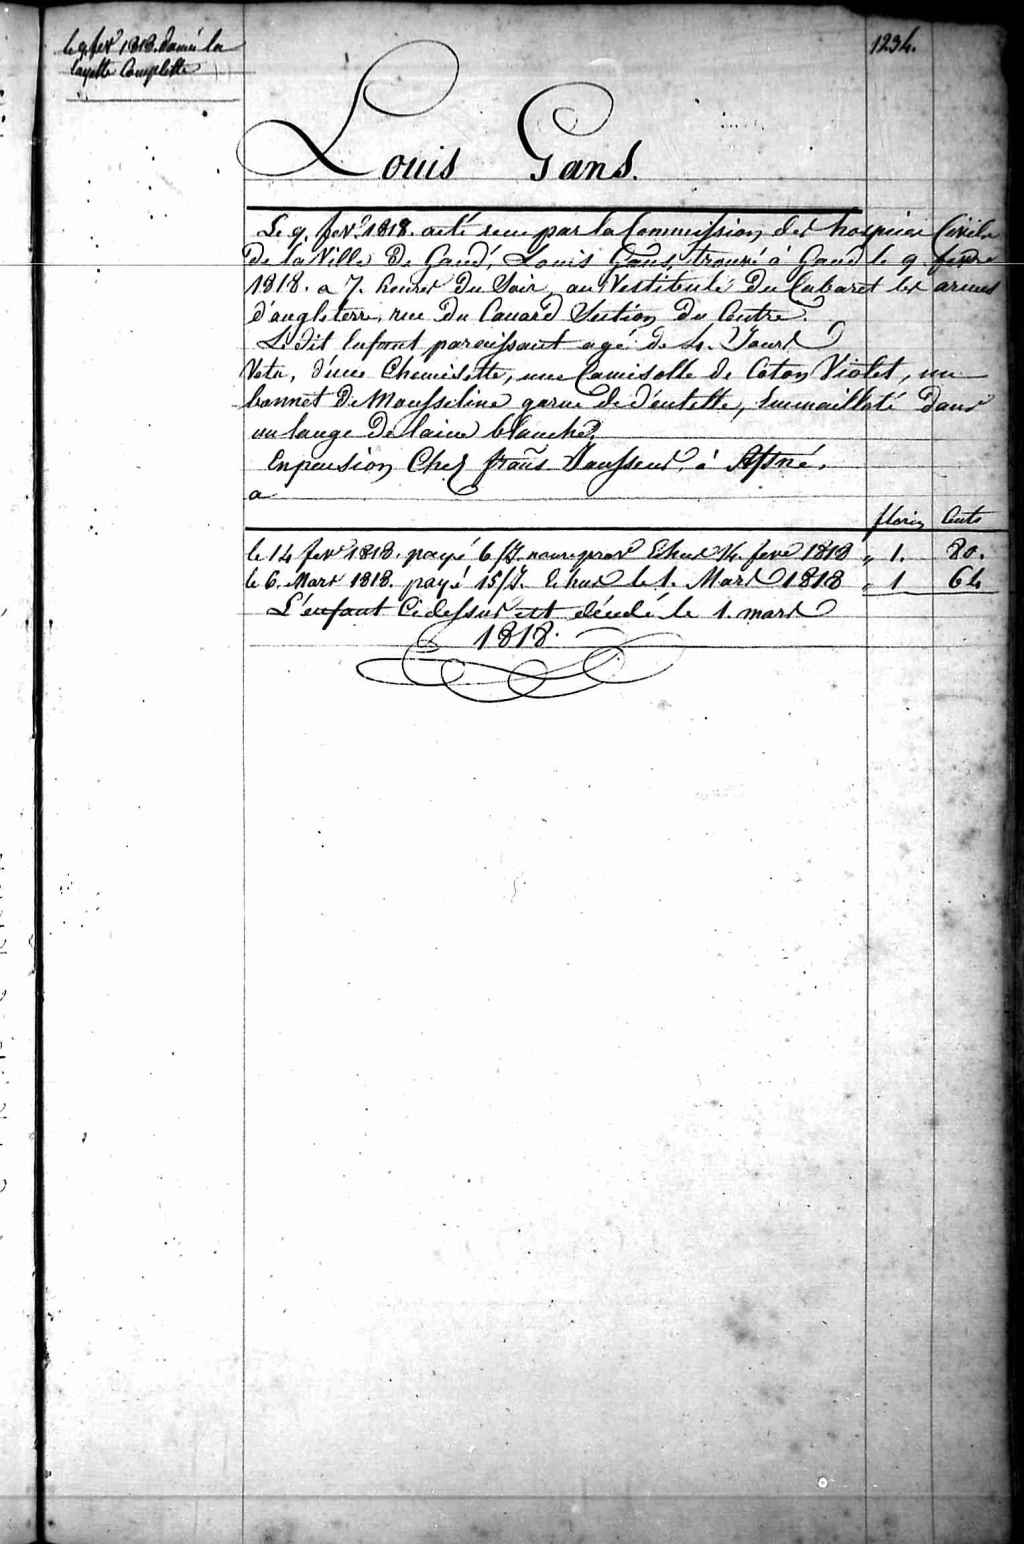 le 9. fevr 1818. donné la
layette Complette
1234.
Louis Gans.
Le 9. fevr 1818. a été recu par la Commission des hospices Civils
De la Ville De Gand, Louis Gans, trouvé à Gand le 9. fevr
1818. a 7. heures Du Soir, au Vestibule Du Cabaret les armes
d'angleterre, rue Du Canard Section Du Centre.
Le dit Enfant paroissant agé de 4. Jours
Vetu, d'une Chemisette, une Camisolle de Coton Violet, un
bonnet De Mousseline garnie de dentelle, Emmailloté dans
un lange De laine blanche.
En pension Chez frans à Asné.
a
florins Cents
le 14 fevr 1818. payé 6/J. Echus 14. fevr 1818 " 1. 80.
le 6. Mars 1818. payé 15/J. Echus le 1. Mars 1818 " 1 64
L'enfant Cidessus est décédé le 1. mars
1818.